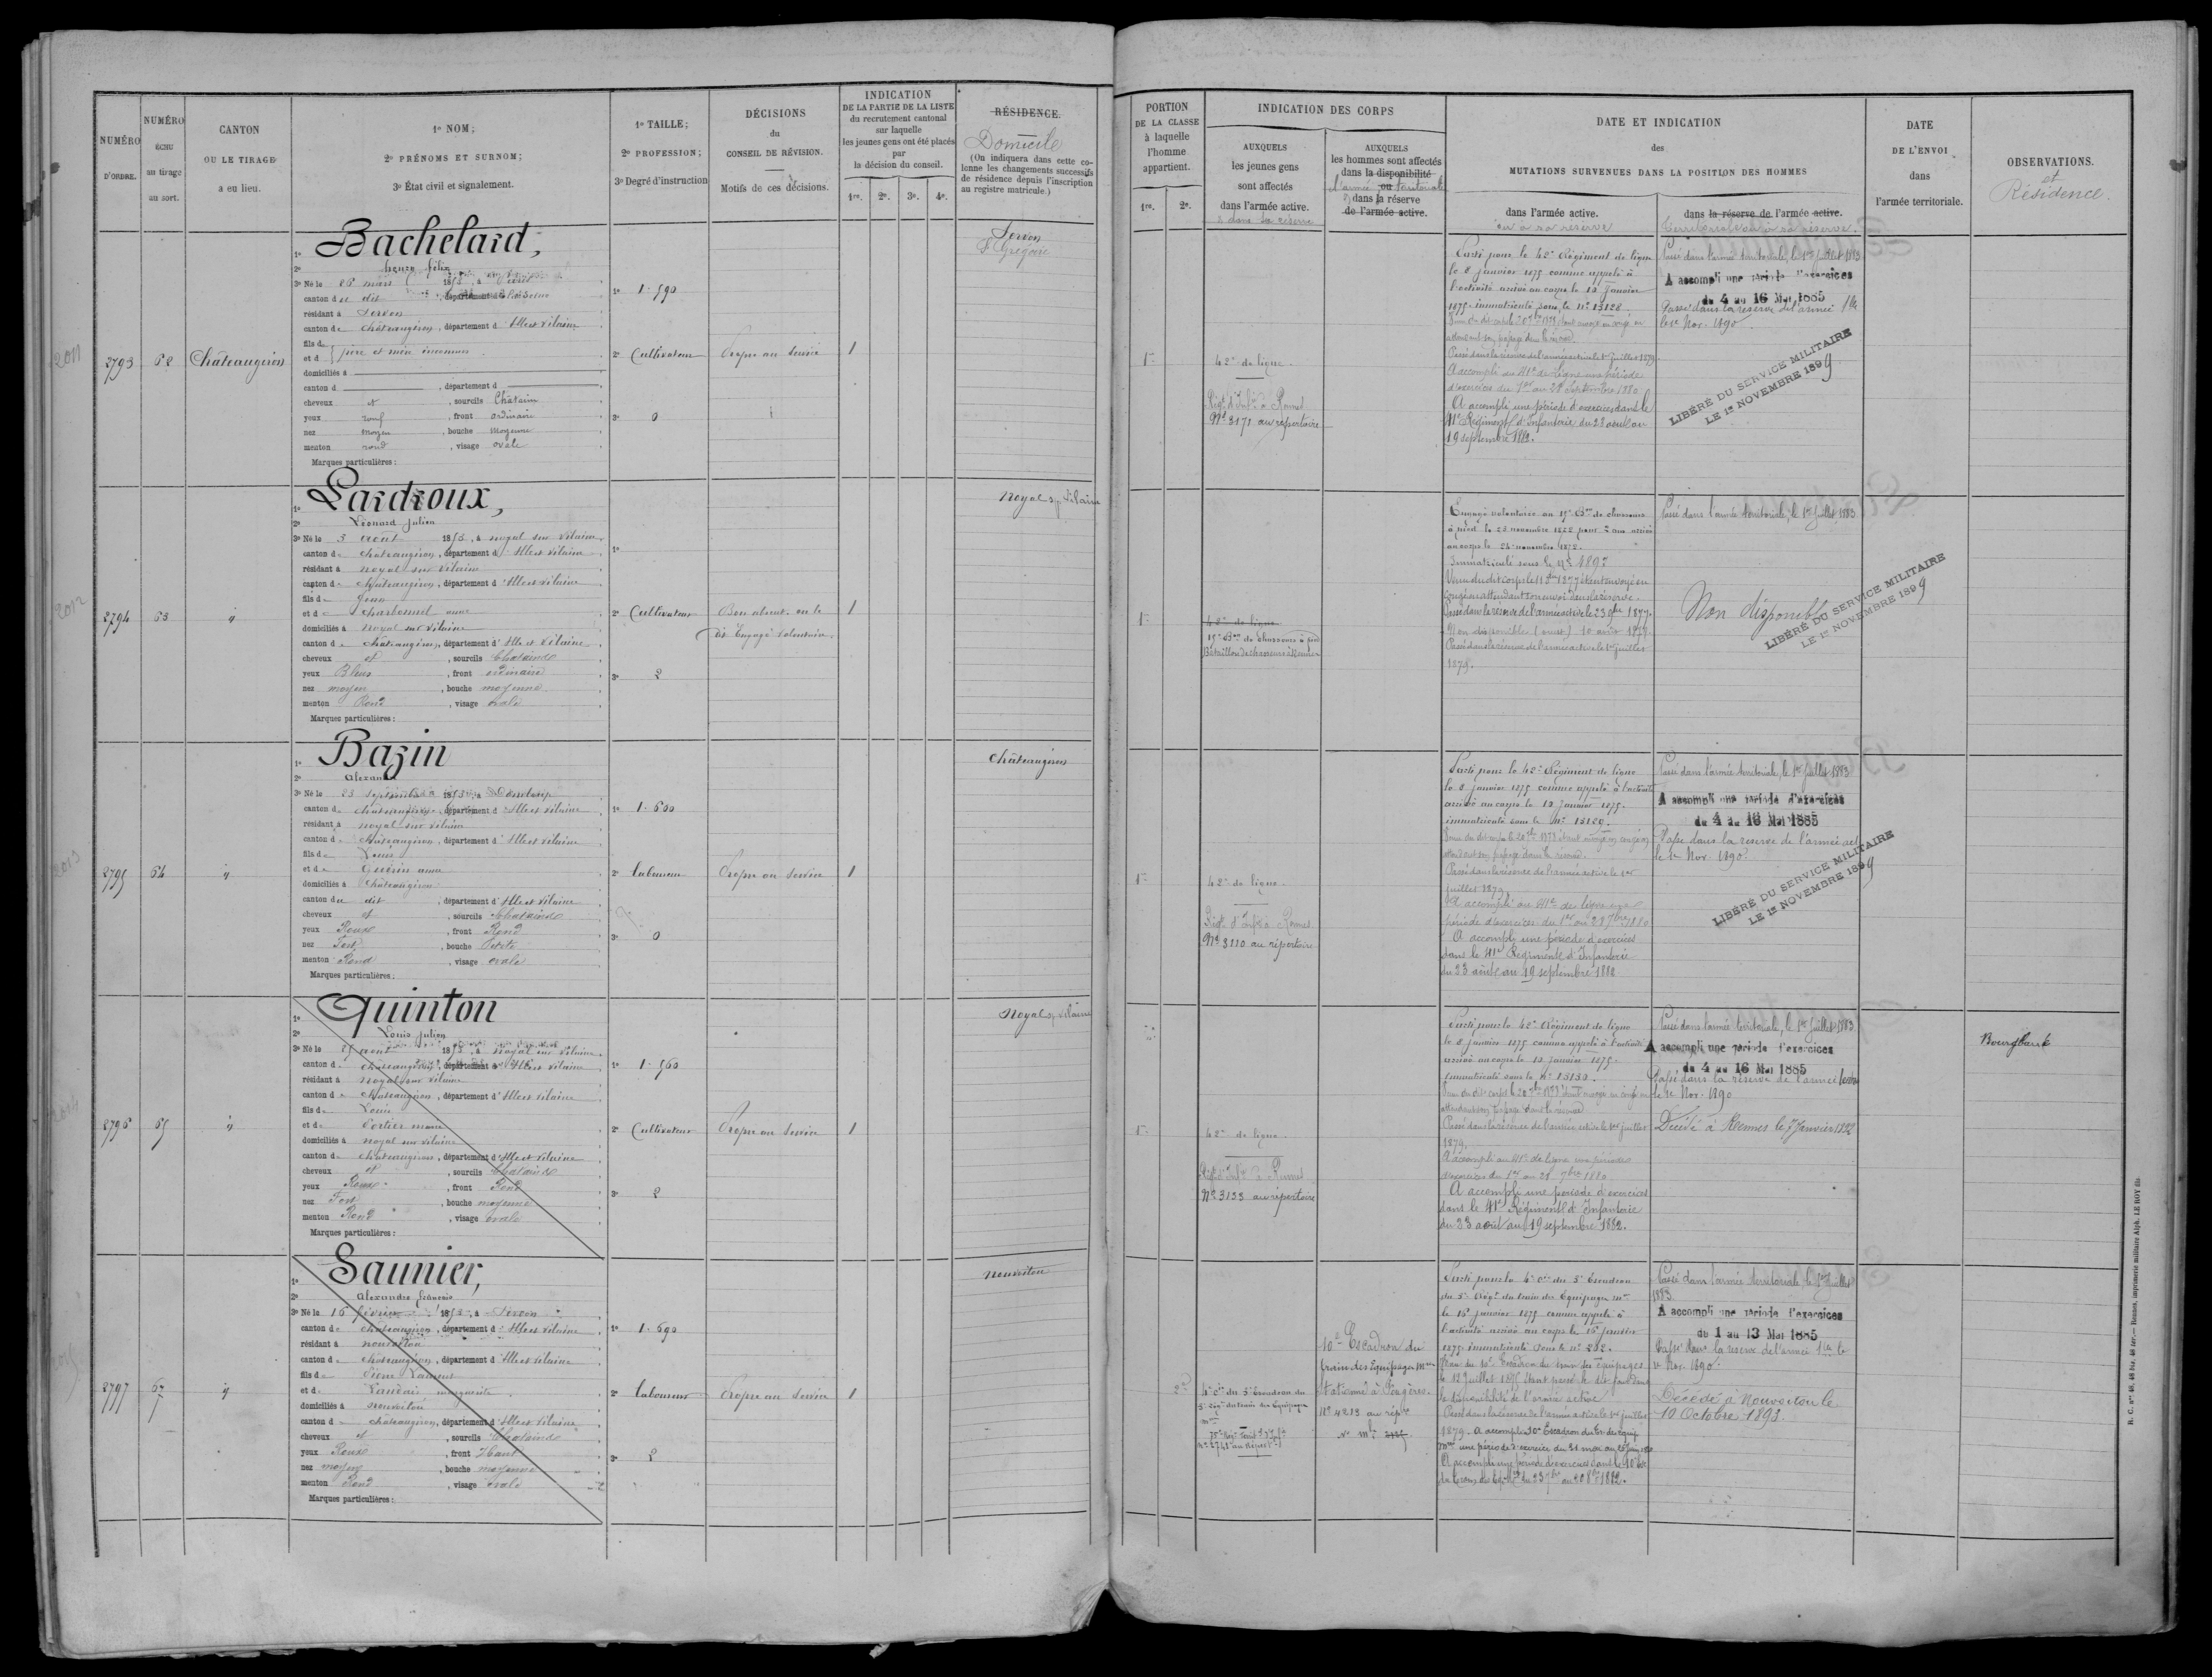 NUMÉRO D'ORDRE.
NUMÉRO ÉCHU au tirage au sort.
CANTON OU LE TIRAGE a eu lieu.
1º NOM;
2º PRÉNOMS ET SURNOM;
3º État civil et signalement.
1º TAILLE;
2º PROFESSION;
3º Degré d'instruction
DÉCISIONS
du
CONSEIL DE RÉVISION.
Motifs de ces décisions.
INDICATION
DE LA PARTIE DE LA LISTE
du recrutement cantonal
sur laquelle
les jeunes gens ont été placés
par
la décision du conseil.
1re. 2e. 3e. 4e.
RÉSIDENCE.
Domicile
(On indiquera dans cette co-
lonne les changements successifs
de résidence depuis l'inscription
au registre matricule.)
PORTION
DE LA CLASSE
à laquelle
l'homme
appartient.
1re. 2e.
INDICATION DES CORPS
AUXQUELS
les jeunes gens
sont affectés
dans l'armée active.
& dans sa réserve
AUXQUELS
les hommes sont affectés
dans la disponibilité
ou
l'armée territoriale
dans la réserve
de l'armée active.
DATE ET INDICATION
des
MUTATIONS SURVENUES DANS LA POSITION DES HOMMES
dans l'armée active.
ou à sa réserve
dans la réserve de l'armée active.
territoriale ou à sa réserve.
DATE
DE L'ENVOI
dans
l'armée territoriale.
OBSERVATIONS.
et
Résidence.
2011
2793
62
Châteaugiron
1º Bachelard,
2º Félix
3º Né le 26 mars 185
canton du dit, département d
résidant à Servon
canton de Châteaugiron, département d'Ille et Vilaine
fils de
et d père et mère inconnus
domiciliés à
canton d , département d
cheveux et , sourcils Châtains
yeux roux , front ordinaire
nez moyen , bouche moyenne
menton rond , visage ovale
Marques particulières :
1º 1. 590
2º Cultivateur
3º 0
Propre au Service
1
Servon
St Grégoire
1re
42e de ligne.
Régt d'Infie à Rennes
Nº 3171 au répertoire
Parti pour le 42e Régiment de ligne
le 8 janvier 1875 comme appelé à
l'activité arrivé au corps le 12 Janvier
1875 immatriculé sous le nº 13128
attendant son passage dans la réserve.
Passé dans la réserve de l'armée active le 1er Juillet 1879.
A accompli au 41e de Ligne une période
d'exercices du 1er au 28 Septembre 1880
A accompli une période d'exercices dans le
41e Régiment d'Infanterie du 23 août au
19 septembre 1882.
Passé dans l'armée territoriale, le 1er Juillet 1883
A accompli une période d'exercices
du 4 au 16 Mai 1885
Passé dans la réserve de l'armée Tle
le 1er Nov. 1890
LIBÉRÉ DU SERVICE MILITAIRE
LE 1er NOVEMBRE 1899
2012
2794
63
"
1º Lardroux,
2º Léonard Julien
3º Né le 3 août 185 , à noyal sur Vilaine
canton de Châteaugiron, département d'Ille et Vilaine
résidant à noyal sur Vilaine
canton de Châteaugiron, département d'Ille et Vilaine
fils de Jean
et de Charbonnel anne
domiciliés à noyal sur Vilaine
canton de Châteaugiron, département d'Ille et Vilaine
cheveux et , sourcils Chatains
yeux Bleus , front ordinaire
nez moyen , bouche moyenne
menton Rond , visage ovale
Marques particulières :
1º
2º Cultivateur
3º 2
Bon absent. on le
dit Engagé Volontaire.
1
Noyal s. Vilaine
1re
42e de ligne
15e Bon de Chasseurs à pied
Bataillon de chasseurs à Rennes
Engagé volontaire au 15e Bon de chasseurs
à pied le 23 novembre 1872 pour 5 ans arrivé
au corps le 24 novembre 1872.
Immatriculé sous le nº 4895
congé en attendant son envoi dans la réserve.
Passé dans la réserve de l'armée active le 23 9bre 1877.
Non disponible (ouest) 10 août 1879.
Passé dans la réserve de l'armée active le 1er juillet
1879.
Passé dans l'armée territoriale, le 1er Juillet 1883
Non disponible
LIBÉRÉ DU SERVICE MILITAIRE
LE 1er NOVEMBRE 1899
2013
2795
64
"
1º Bazin
2º Alexandre
3º Né le 23 septembre 185 , à Domloup
canton de Châteaugiron, département d'Ille et Vilaine
résidant à noyal sur Vilaine
canton de Châteaugiron, département d'Ille et Vilaine
fils de Louis
et de Guérin anne
domiciliés à Châteaugiron
canton du dit , département d'Ille et Vilaine
cheveux et , sourcils Chatains
yeux Roux , front Rond
nez Fort , bouche Petite
menton Rond , visage ovale
Marques particulières :
1º 1. 600
2º Laboureur
3º 0
Propre au Service
1
Châteaugiron
1re
42e de ligne.
Régt d'Infie à Rennes
Nº 3110 au répertoire
Parti pour le 42e Régiment de ligne
le 8 janvier 1875 comme appelé à l'activité
arrivé au corps le 12 Janvier 1875.
immatriculé sous le Nº 13129.
attendant son passage dans la réserve.
Passé dans la réserve de l'armée active le 1er
juillet 1879.
A accompli au 41e de ligne une
période d'exercices du 1er au 28 7bre 1880
A accompli une période d'exercices
dans le 41e Régiment d'Infanterie
du 23 août au 19 septembre 1882
Passé dans l'armée territoriale, le 1er Juillet 1883
A accompli une période d'exercices
du 4 au 16 Mai 1885
Passé dans la réserve de l'armée act
le 1er Nov. 1890
LIBÉRÉ DU SERVICE MILITAIRE
LE 1er NOVEMBRE 1899
2014
2796
65
"
1º Quinton
2º Louis Julien
3º Né le 25 août 185 , à Noyal sur Vilaine
canton de Châteaugiron, département d'Ille et Vilaine
résidant à Noyal sur Vilaine
canton de Châteaugiron, département d'Ille et Vilaine
fils de Louis
et de Portier marie
domiciliés à noyal sur Vilaine
canton de Châteaugiron, département d'Ille et Vilaine
cheveux et , sourcils Chatains
yeux Roux , front Rond
nez Fort , bouche moyenne
menton Rond , visage ovale
Marques particulières :
1º 1. 560
2º Cultivateur
3º 2
Propre au Service
1
Noyal s. Vilaine
1re
42e de ligne.
Régt d'Infie à Rennes
Nº 3133 au répertoire
Parti pour le 42e Régiment de ligne
le 8 janvier 1875 comme appelé à l'activité
arrivé au corps le 12 janvier 1875.
immatriculé sous le nº 13130.
attendant son passage dans la réserve
Passé dans la réserve de l'armée active le 1er juillet
1879.
A accompli au 41e de ligne une période
d'exercices du 1er au 28 7bre 1880
A accompli une période d'exercices
dans le 41e Régiment d'Infanterie
du 23 août au 19 septembre 1882.
Passé dans l'armée territoriale, le 1er Juillet 1883
A accompli une période d'exercices
du 4 au 16 Mai 1885
Passé dans la réserve de l'armée
le 1er Nov. 1890
Décédé à Rennes le 7 Janvier 1892
2797
67
"
1º Saunier,
2º Alexandre françois
3º Né le 16 février 185 , à Servon
canton de Châteaugiron, département d'Ille et Vilaine
résidant à nouvoitou
canton de Châteaugiron, département d'Ille et Vilaine
fils de Pierre Laurent
et de Landais marguerite
domiciliés à nouvoitou
canton de Châteaugiron, département d'Ille et Vilaine
cheveux et , sourcils Chatains
yeux Roux , front Haut
nez moyen , bouche moyenne
menton Rond , visage ovale
Marques particulières :
1º 1. 690
2º Laboureur
3º 2
Propre au Service
1
nouvoitou
2e
4e Cie du 5e Escadron du
10e Escadron du
train des Equipages Mres
stationné à Fougères.
Nº 4213 au répre
Parti pour la 4e Cie du 5e Escadron
du 5e Régt du train des Equipages mres
le 16 janvier 1875 comme appelé à
l'activité arrivé au corps le 16 janvier
1875 immatriculé sous le nº 282.
10e Escadron du train des équipages
le 12 Juillet 1875 étant passé le dit jour dans
la disponibilité de l'armée active
Passé dans la réserve de l'armée active le 1er juillet
1879. A accompli 10e Escadron du tr. des équip
A accompli une période d'exercices dans le 10e
Passé dans l'armée territoriale, le 1er Juillet
1883
A accompli une période d'exercices
du 1 au 13 Mai 1885
Passé dans la réserve de l'armée Tle le
1er Nov. 1890.
Décédé à Nouvoitou le
10 Octobre 1893.
R. C. nos 48, 48 bis, 48 ter. — Rennes, imprimerie militaire Alph. LE ROY fils